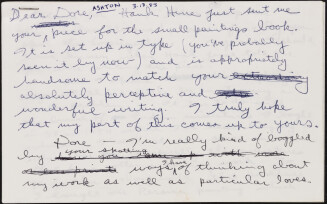 Dear Dore, ASHTON 3.12.83 – Hank Hine just sent me
your piece for the small paintings book.
It is set up in type (you've probably
seen it by now) and is appropriately
handsome to match your
absolutely perceptive and
wonderful writing. I truly hope
that my part of this comes up to yours.
Dore – I'm really kind of boggled
by your spotting
ways of thinking about
my work as well as particular loves.